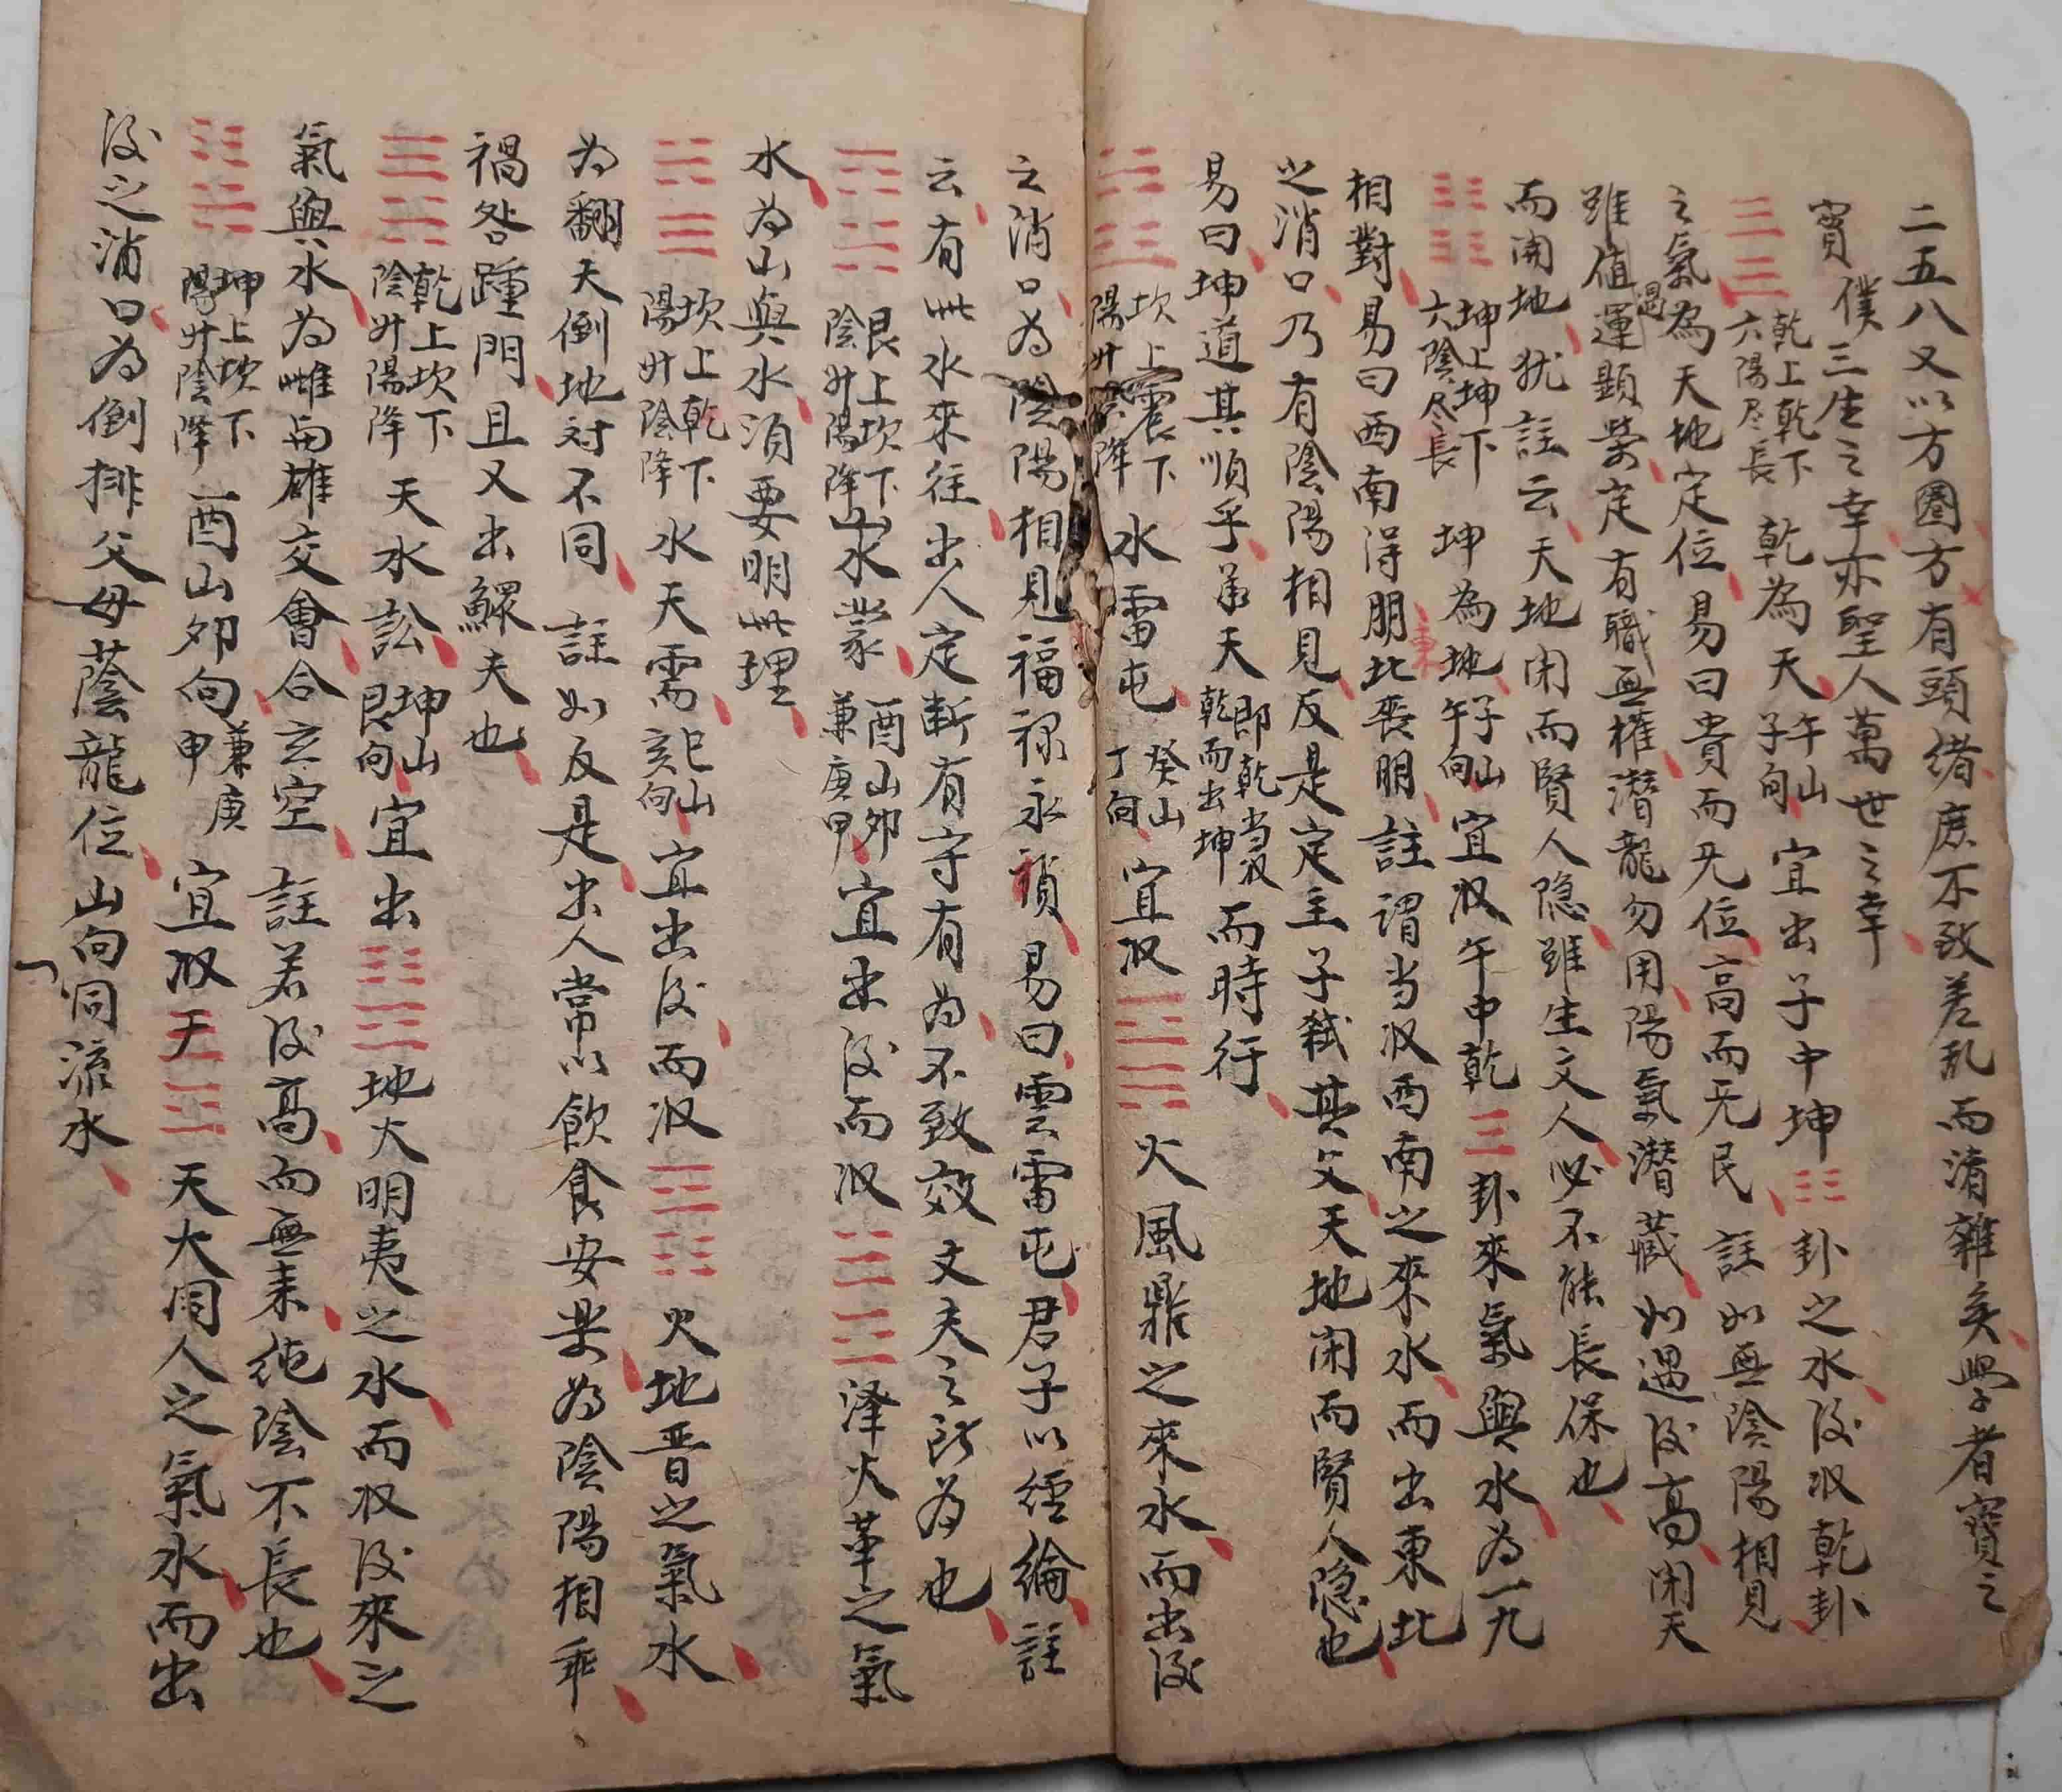 二五八又以方圈方有頭緒庶不致差乱而淆雜矣學者寶之
寳 僕三生之幸亦聖人萬世之幸
乾上乾下六陽尽長 乾為天 午山子向 宜出子中坤☷卦之水后收乾卦
之氣為天地定位易曰貴而无位高而无民 註如無陰陽相見
雖值運遇顯榮定有職無權潛龍勿用陽氣潛藏如遇后高闭天
而開地犹註云天地闭而賢人隐雖生文人必不能長保也
坤上坤下六陰尽長 坤為地 子山午向 宜収午中乾☰卦來氣與水為一九
相對易曰西南得朋東北喪朋註謂当収西南之來水而出東北
之消口乃有陰陽相見反是定主子弒其父天地闭而賢人隐也
易曰坤道其順乎承天 即乾当収乾而出坤 而時行
坎上震下陽升陰降 水雷屯 癸山丁向 宜収 火風鼎之來水而出后
之消口為陰陽相見福禄永禎易曰雲雷屯君子以經綸註
云有此水來往出人定断有守有為不致效文夫之所為也
艮上坎下陰升陽降 山水蒙 酉山卯兼庚甲 宜出后而収 澤火革之氣
水為山與水須要明此理
坎上乾下陽升陰降 水天需 巳山亥向 宜出后而収 火地晋之氣水
為翻天倒地対不同 註如反是出人常以飲食安楽為陰陽相乖
禍咎踵門且又出鰥夫也
乾上坎下陰升陽降 天水訟 坤山艮向 宜出 地火明夷之水而収后來之
氣與水為雌與雄交會合玄空 註若后高而無来純陰不長也
坤上坎下陽升陰降 酉山卯向兼庚申 宜収天 天火同人之氣水而出
后之消口為倒排父母蔭龍位山向同流水